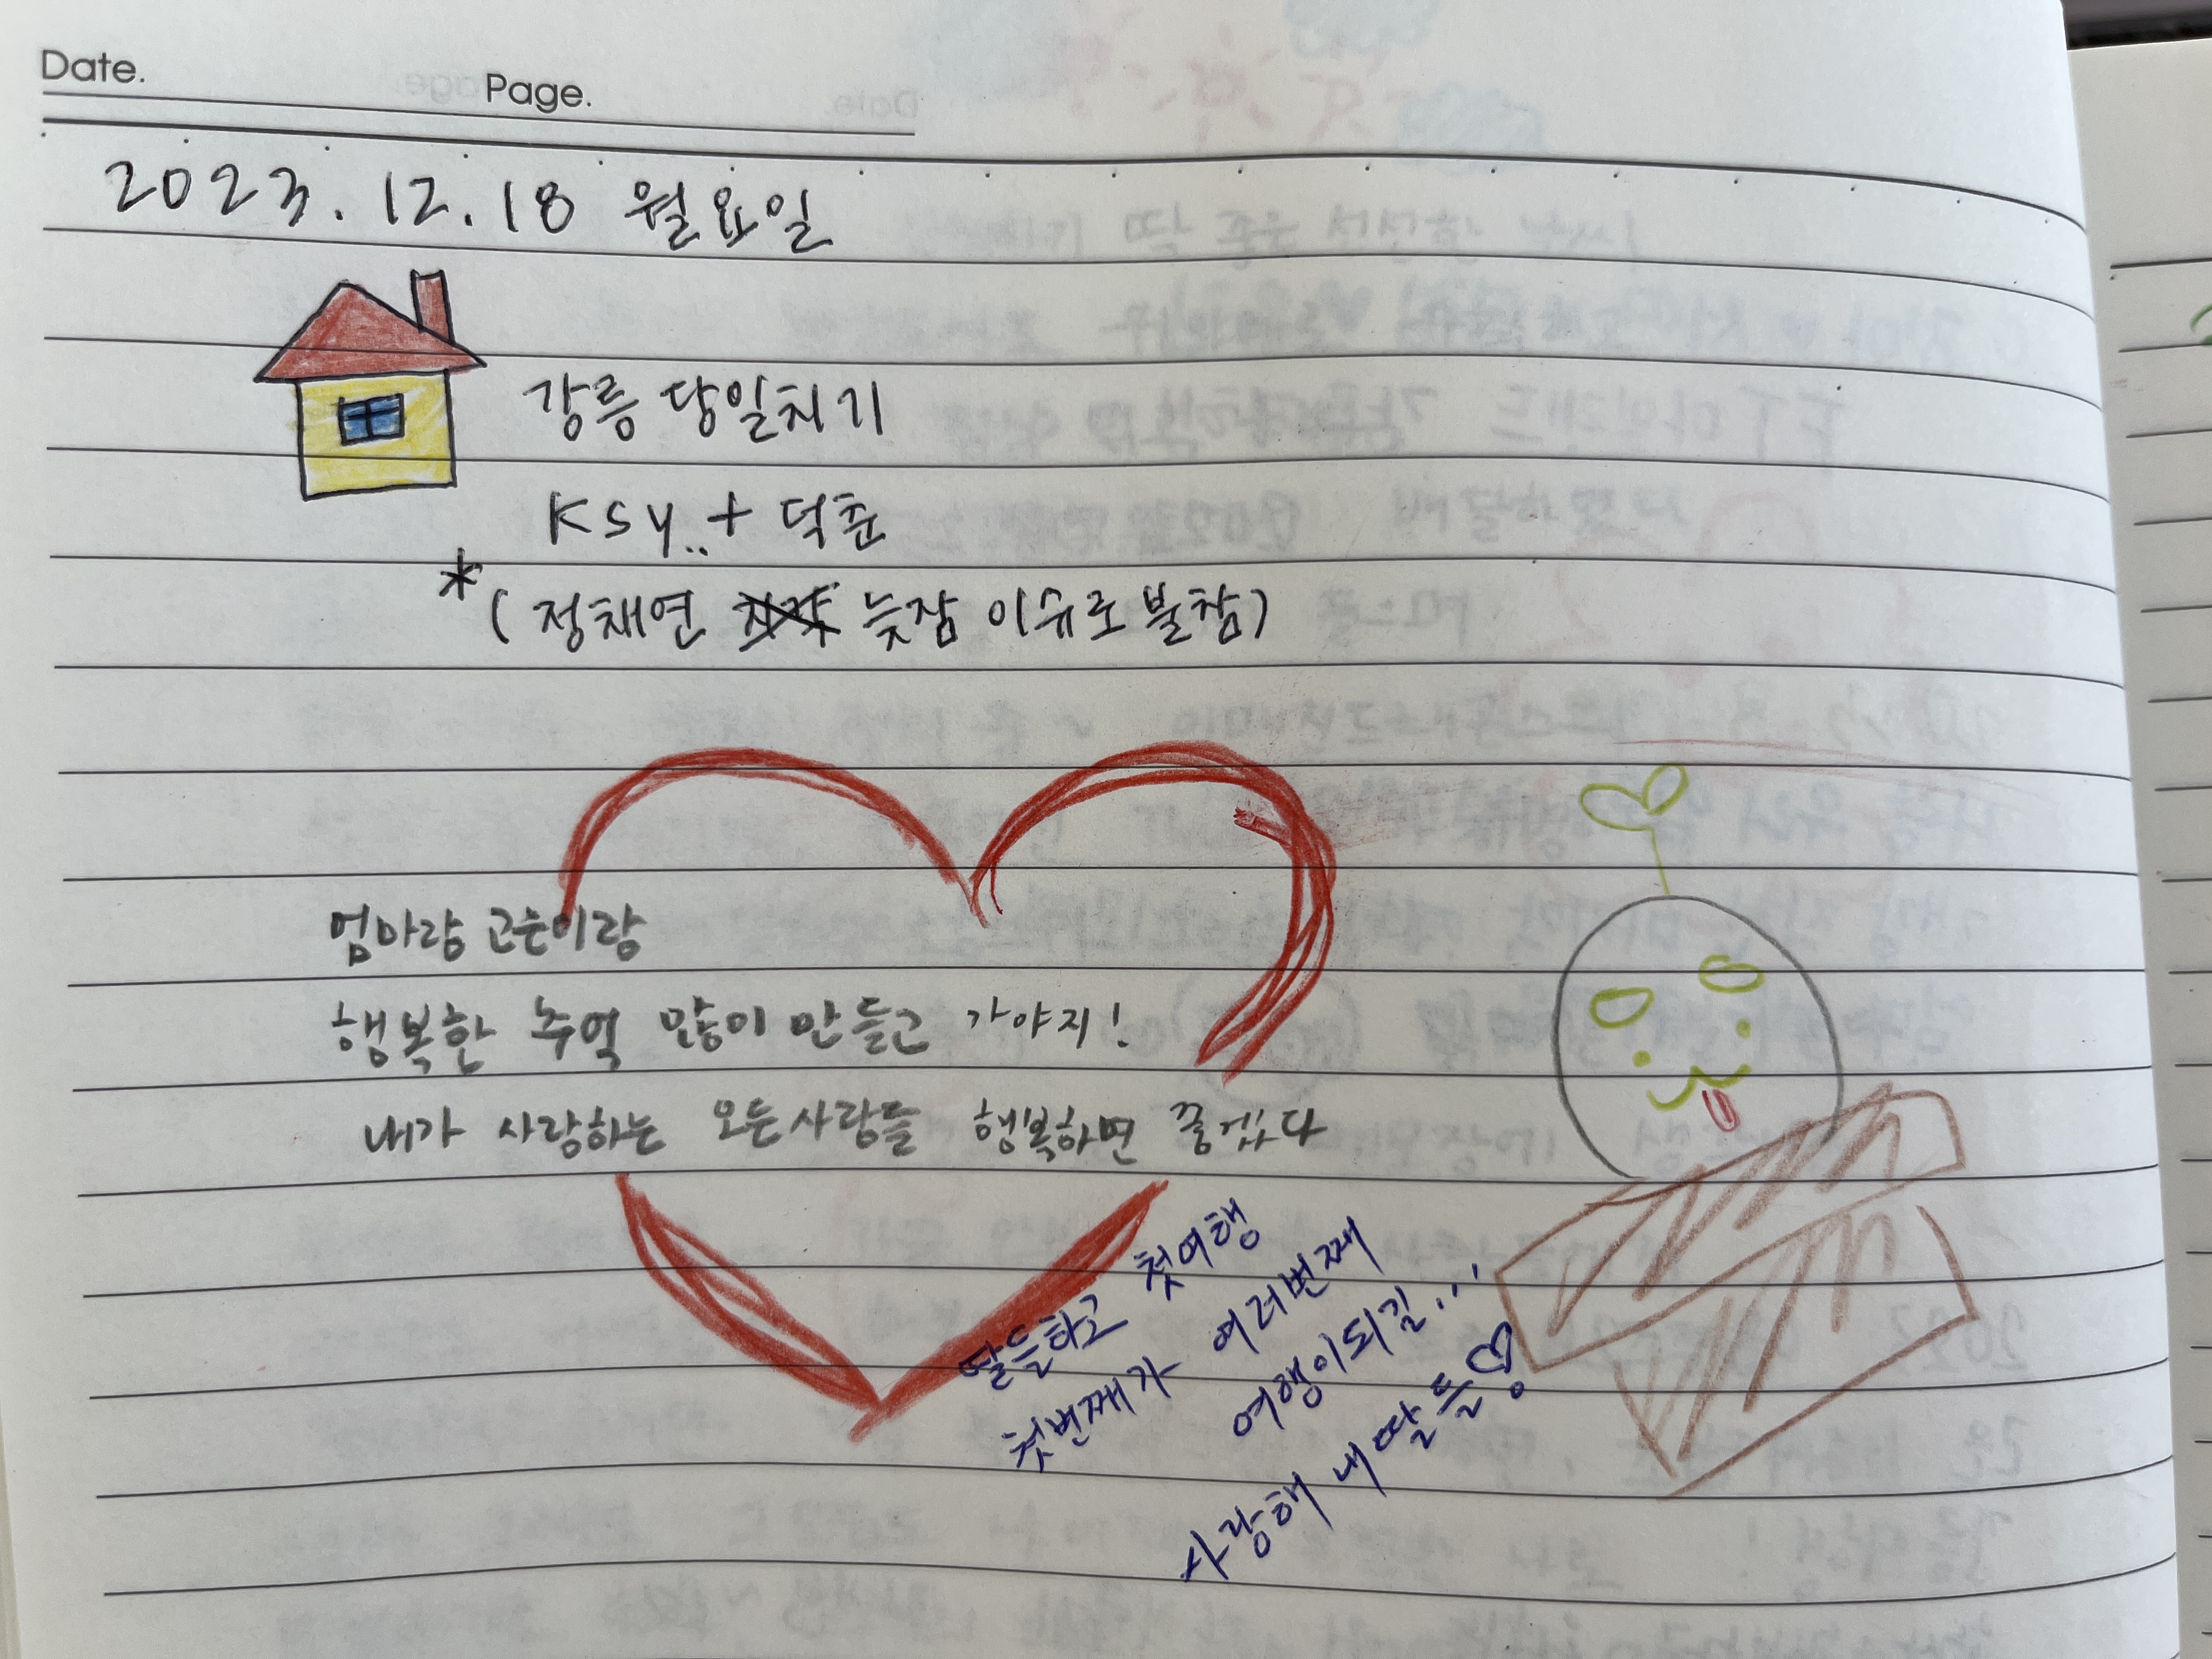 Date.
Page.
2023. 12. 18 월요일
강릉 당일치기
KSY.. + 덕춘
*(정채연 늦잠 이슈로 불참)
엄마랑 고은이랑
행복한 추억 많이 만들고 가야지!
내가 사랑하는 모든사람들 행복하면 좋겠다
딸들하고 첫여행
첫번째가 여러번째
여행이되길...
사랑해 내딸들♡